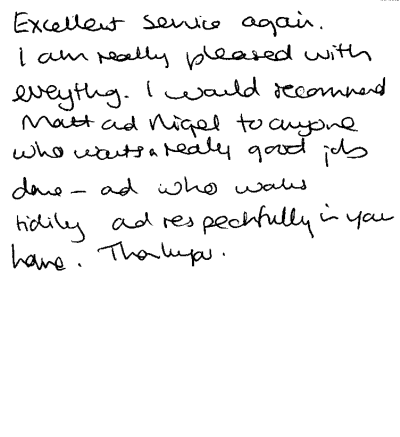 Excellent service again.
I am really pleased with
everything. I would recommend
Matt and Nigel to anyone
who wants a really good job
done - and who works
tidily and respectfully in your
home. Thank you.